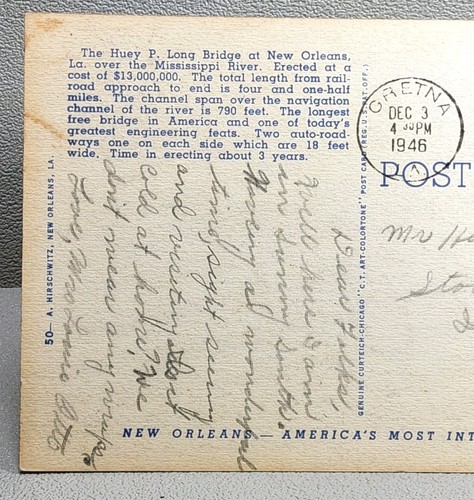 The Huey P. Long Bridge at New Orleans,
La. over the Mississippi River. Erected at a
cost of $13,000,000. The total length from rail-
road approach to end is four and one-half
miles. The channel span over the navigation
channel of the river is 790 feet. The longest
free bridge in America and one of today's
greatest engineering feats. Two auto-road-
ways one on each side which are 18 feet
wide. Time in erecting about 3 years.
50— A. HIRSCHWITZ, NEW ORLEANS, LA.
Dear Folks,
Well here I am
in sunny South.
Having a wonderful
time, sight seeing
and visiting. Is it
cold at home? We
don't wear any wraps.
Love, Mrs.
GENUINE CURTEICH-CHICAGO "C.T. ART-COLORTONE" POST CARD (REG. U.S. PAT. OFF.)
GRETNA
DEC 3
4 30 PM
1946
LA
POST
Mr
NEW ORLEANS — AMERICA'S MOST INT